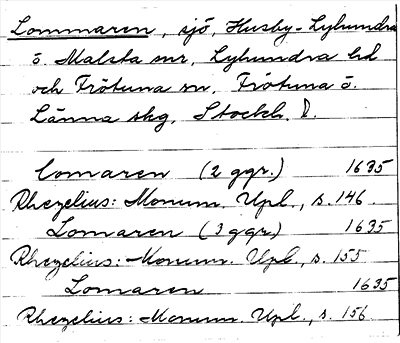 Lommaren, sjö, Husby-Lyhundra
o. Malsta snr, Lyhundra hd
och Frötuna sn, Frötuna o.
Länna skg, Stockh. l.
Lomaren (2 ggr.) 1635
Rhezelius: Monum. Upl., s. 146.
Lomaren (3 ggr) 1635
Rhezelius: Monum. Upl., s. 155
Lomaren 1635
Rhezelius: Monum. Upl., s. 156